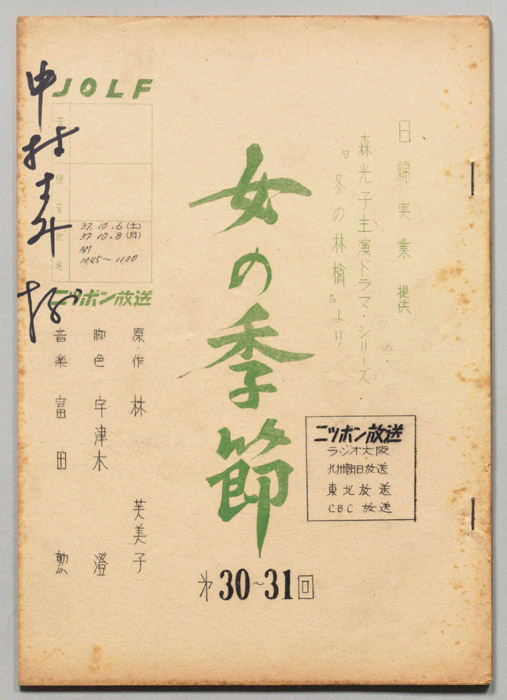 日綿実業 提供
森光子主演ドラマ・シリーズ
『冬の林檎』より
女の季節
第30~31回
ニッポン放送
ラジオ大阪
九州朝日放送
東北放送
CBC 放送
JOLF
録音
放送
37.10.6(土)
37.10.8(月)
AM
10.45~11.00
ニッポン放送
原作 林 芙美子
脚色 宇津木 澄
音楽 富田 勲
中村